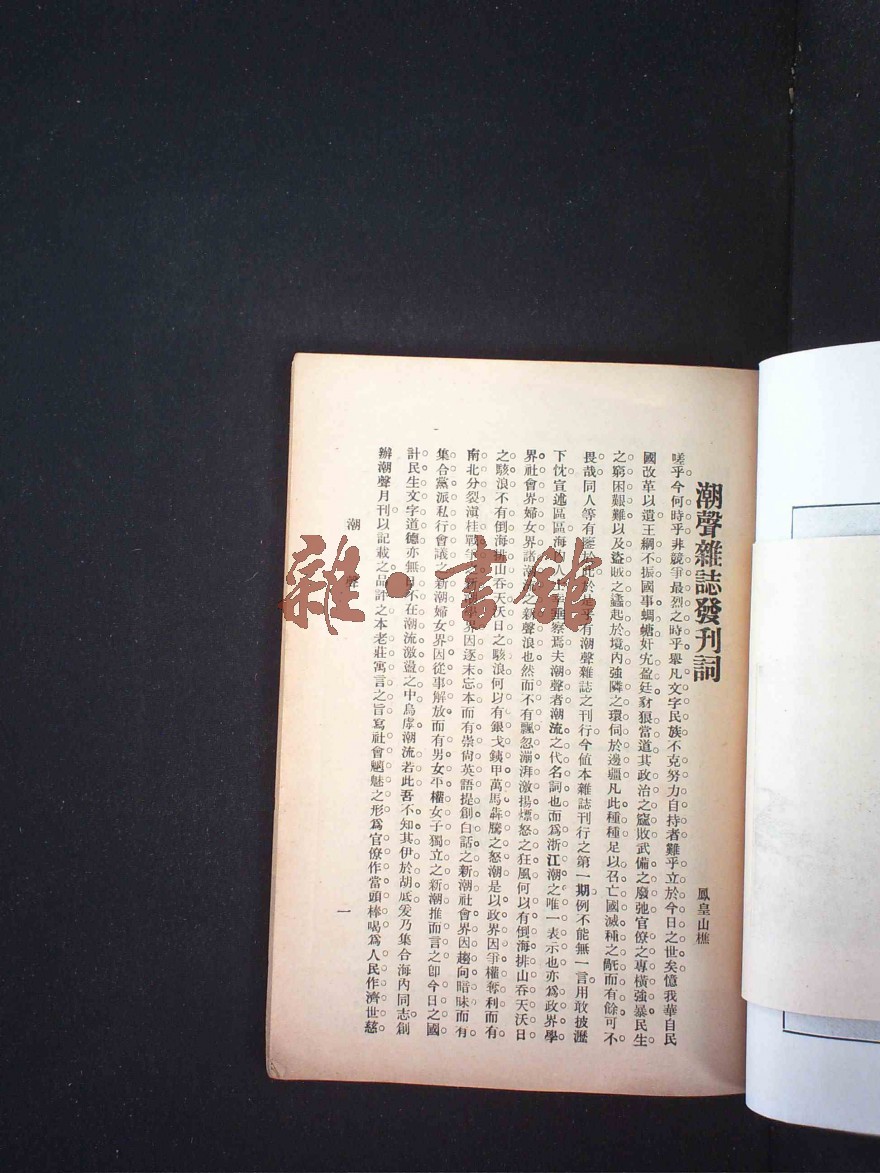 潮聲雜誌發刊詞
鳳皇山樵
嗟乎今何時乎非競爭最烈之時乎舉凡文字民族不克努力自持者難乎立於今日之世矣憶我華自民
國改革以還王綱不振國事蜩螗奸宄盈廷豺狼當道其政治之窳敗武備之廢弛官僚之專橫強暴民生
之窮困艱難以及盜賊之蠭起於境內強隣之環伺於邊疆凡此種種足以召亡國滅種之甋而有餘可不
畏哉同人等有鑒於此於是乎有潮聲雜誌之刊行今値本雜誌刊行之第一期例不能無一言用敢披瀝
下忱宣述區區海內
垂察焉夫潮聲者潮流之代名詞也而爲浙江潮之唯一表示也亦爲政界學
界社會界婦女界諸潮
之新聲浪也然而不有飄忽漰湃激揚熛怒之狂風何以有倒海排山吞天沃日
之駭浪不有倒海排山吞天沃日之駭浪何以有銀戈銕甲萬馬犇騰之怒潮是以政界因爭權奪利而有
南北分裂滇桂戰爭
界因逐末忘本而有崇尙英語提創白話之新潮社會界因趨向暗昧而有
集合黨派私行會議之新潮婦女界因從事解放而有男女平權女子獨立之新潮推而言之卽今日之國
計民生文字道德亦無日不在潮流激盪之中烏虖潮流若此吾不知其伊於胡底爰乃集合海內同志創
辦潮聲月刊以記載之品評之本老莊寓言之旨寫社會魍魅之形爲官僚作當頭棒喝爲人民作濟世慈
潮聲
一
雜·書館